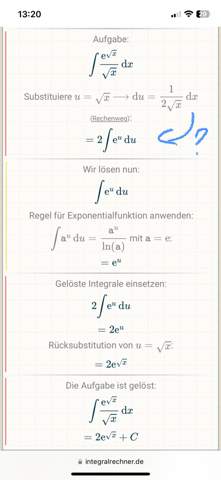 13:20
Aufgabe:
∫ e^√x / √x dx
Substituiere u = √x ⟶ du = 1 / 2√x dx
(Rechenweg):
= 2 ∫ e^u du
?
Wir lösen nun:
∫ e^u du
Regel für Exponentialfunktion anwenden:
∫ a^u du = a^u / ln(a) mit a = e:
= e^u
Gelöste Integrale einsetzen:
2 ∫ e^u du
= 2e^u
Rücksubstitution von u = √x:
= 2e^√x
Die Aufgabe ist gelöst:
∫ e^√x / √x dx
= 2e^√x + C
integralrechner.de